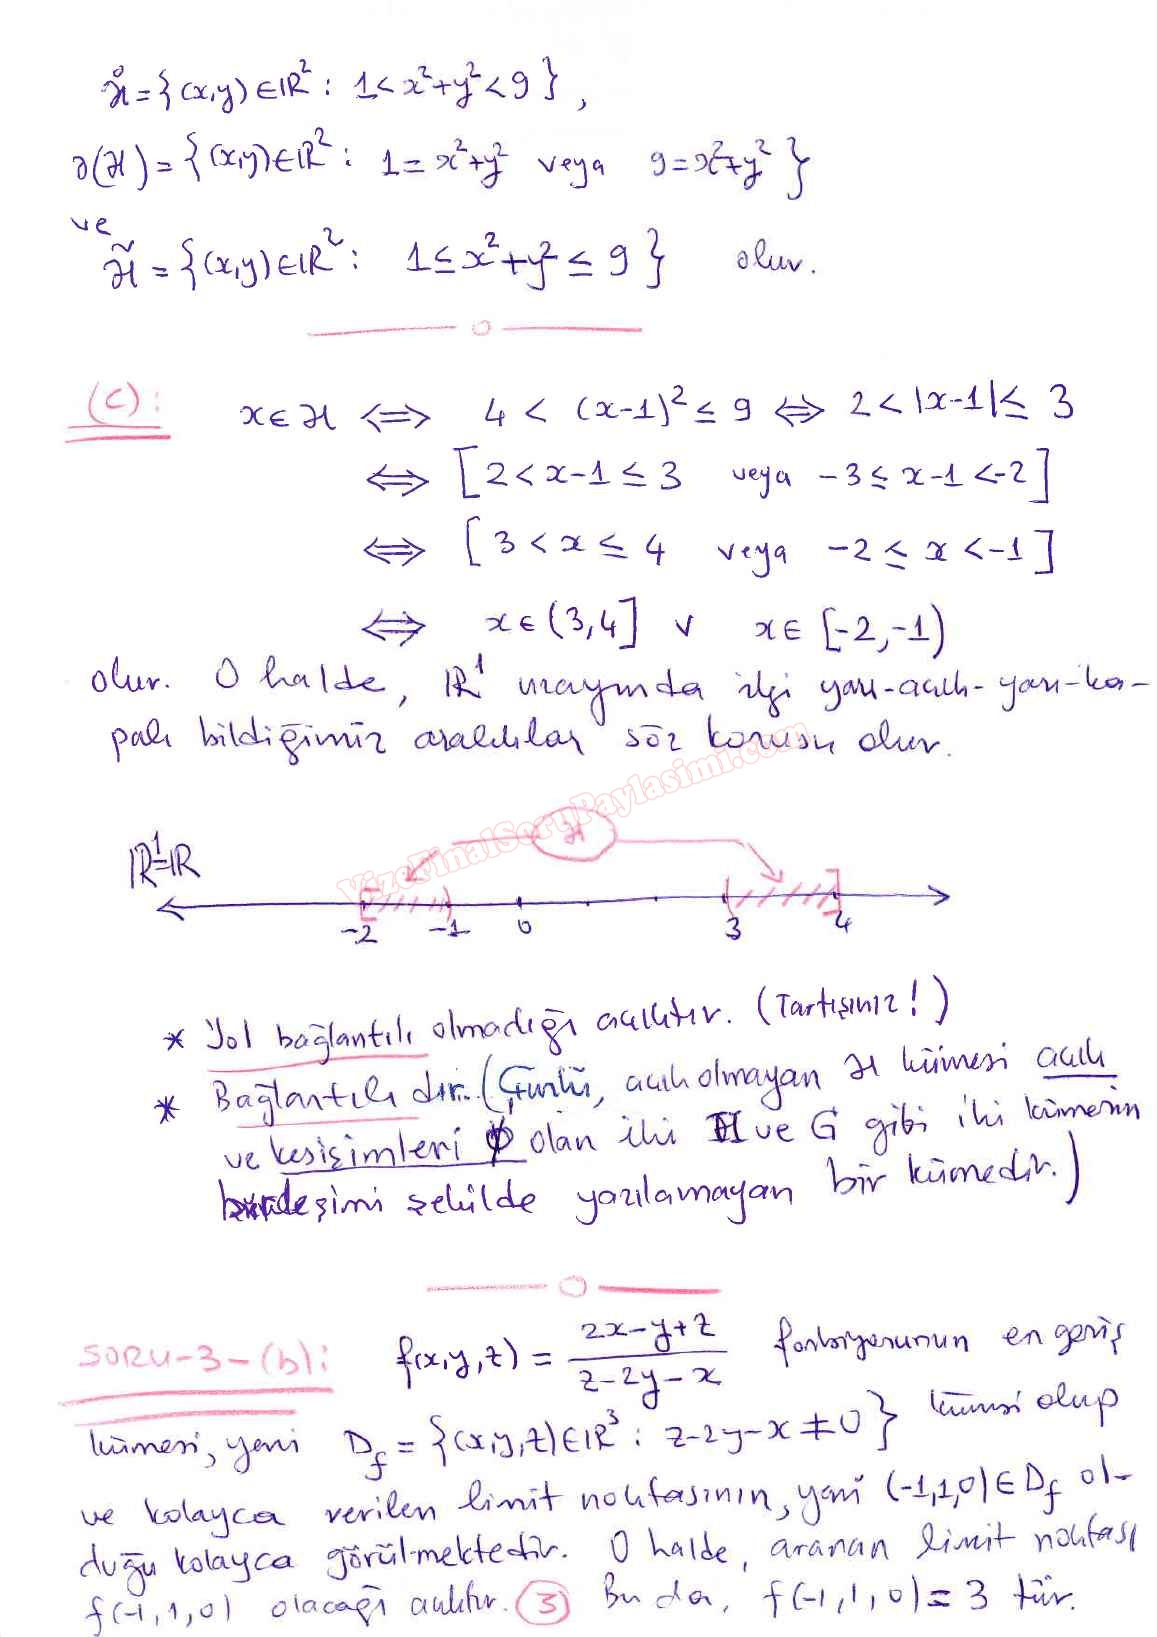 H̊ = {(x,y) ∈ IR² : 1 < x²+y² < 9},
∂(H) = {(x,y) ∈ IR² : 1 = x²+y² veya 9 = x²+y²}
ve
H̃ = {(x,y) ∈ IR² : 1 ≤ x²+y² ≤ 9} olur.
(c): x ∈ H ⇔ 4 < (x-1)² ≤ 9 ⇔ 2 < |x-1| ≤ 3
⇔ [2 < x-1 ≤ 3 veya -3 ≤ x-1 < -2]
⇔ [3 < x ≤ 4 veya -2 ≤ x < -1]
⇔ x ∈ (3,4] ∨ x ∈ [-2,-1)
olur. O halde, IR¹ uzayında ilgi yarı-açık-yarı-ka-
palı bildiğimiz aralıklar söz konusu olur.
VizeFinalSoruPaylasimi.com
H
IR¹=IR
-2 -1 0 3 4
* Yol bağlantılı olmadığı açıktır. (Tartışınız!)
* Bağlantılıdır. (Çünkü, açık olmayan H kümesi açık
ve kesişimleri ∅ olan iki H ve G gibi iki kümenin
birleşimi şekilde yazılamayan bir kümedir.)
SORU-3-(b): f(x,y,z) = (2x-y+z)/(z-2y-x) fonksiyonunun en geniş
kümesi, yani D_f = {(x,y,z) ∈ IR³ : z-2y-x ≠ 0} kümesi olup
ve kolayca verilen limit noktasının, yani (-1,1,0) ∈ D_f ol-
duğu kolayca görülmektedir. O halde, aranan limit noktası
f(-1,1,0) olacağı açıktır. (3) Bu da, f(-1,1,0) = 3 tür.